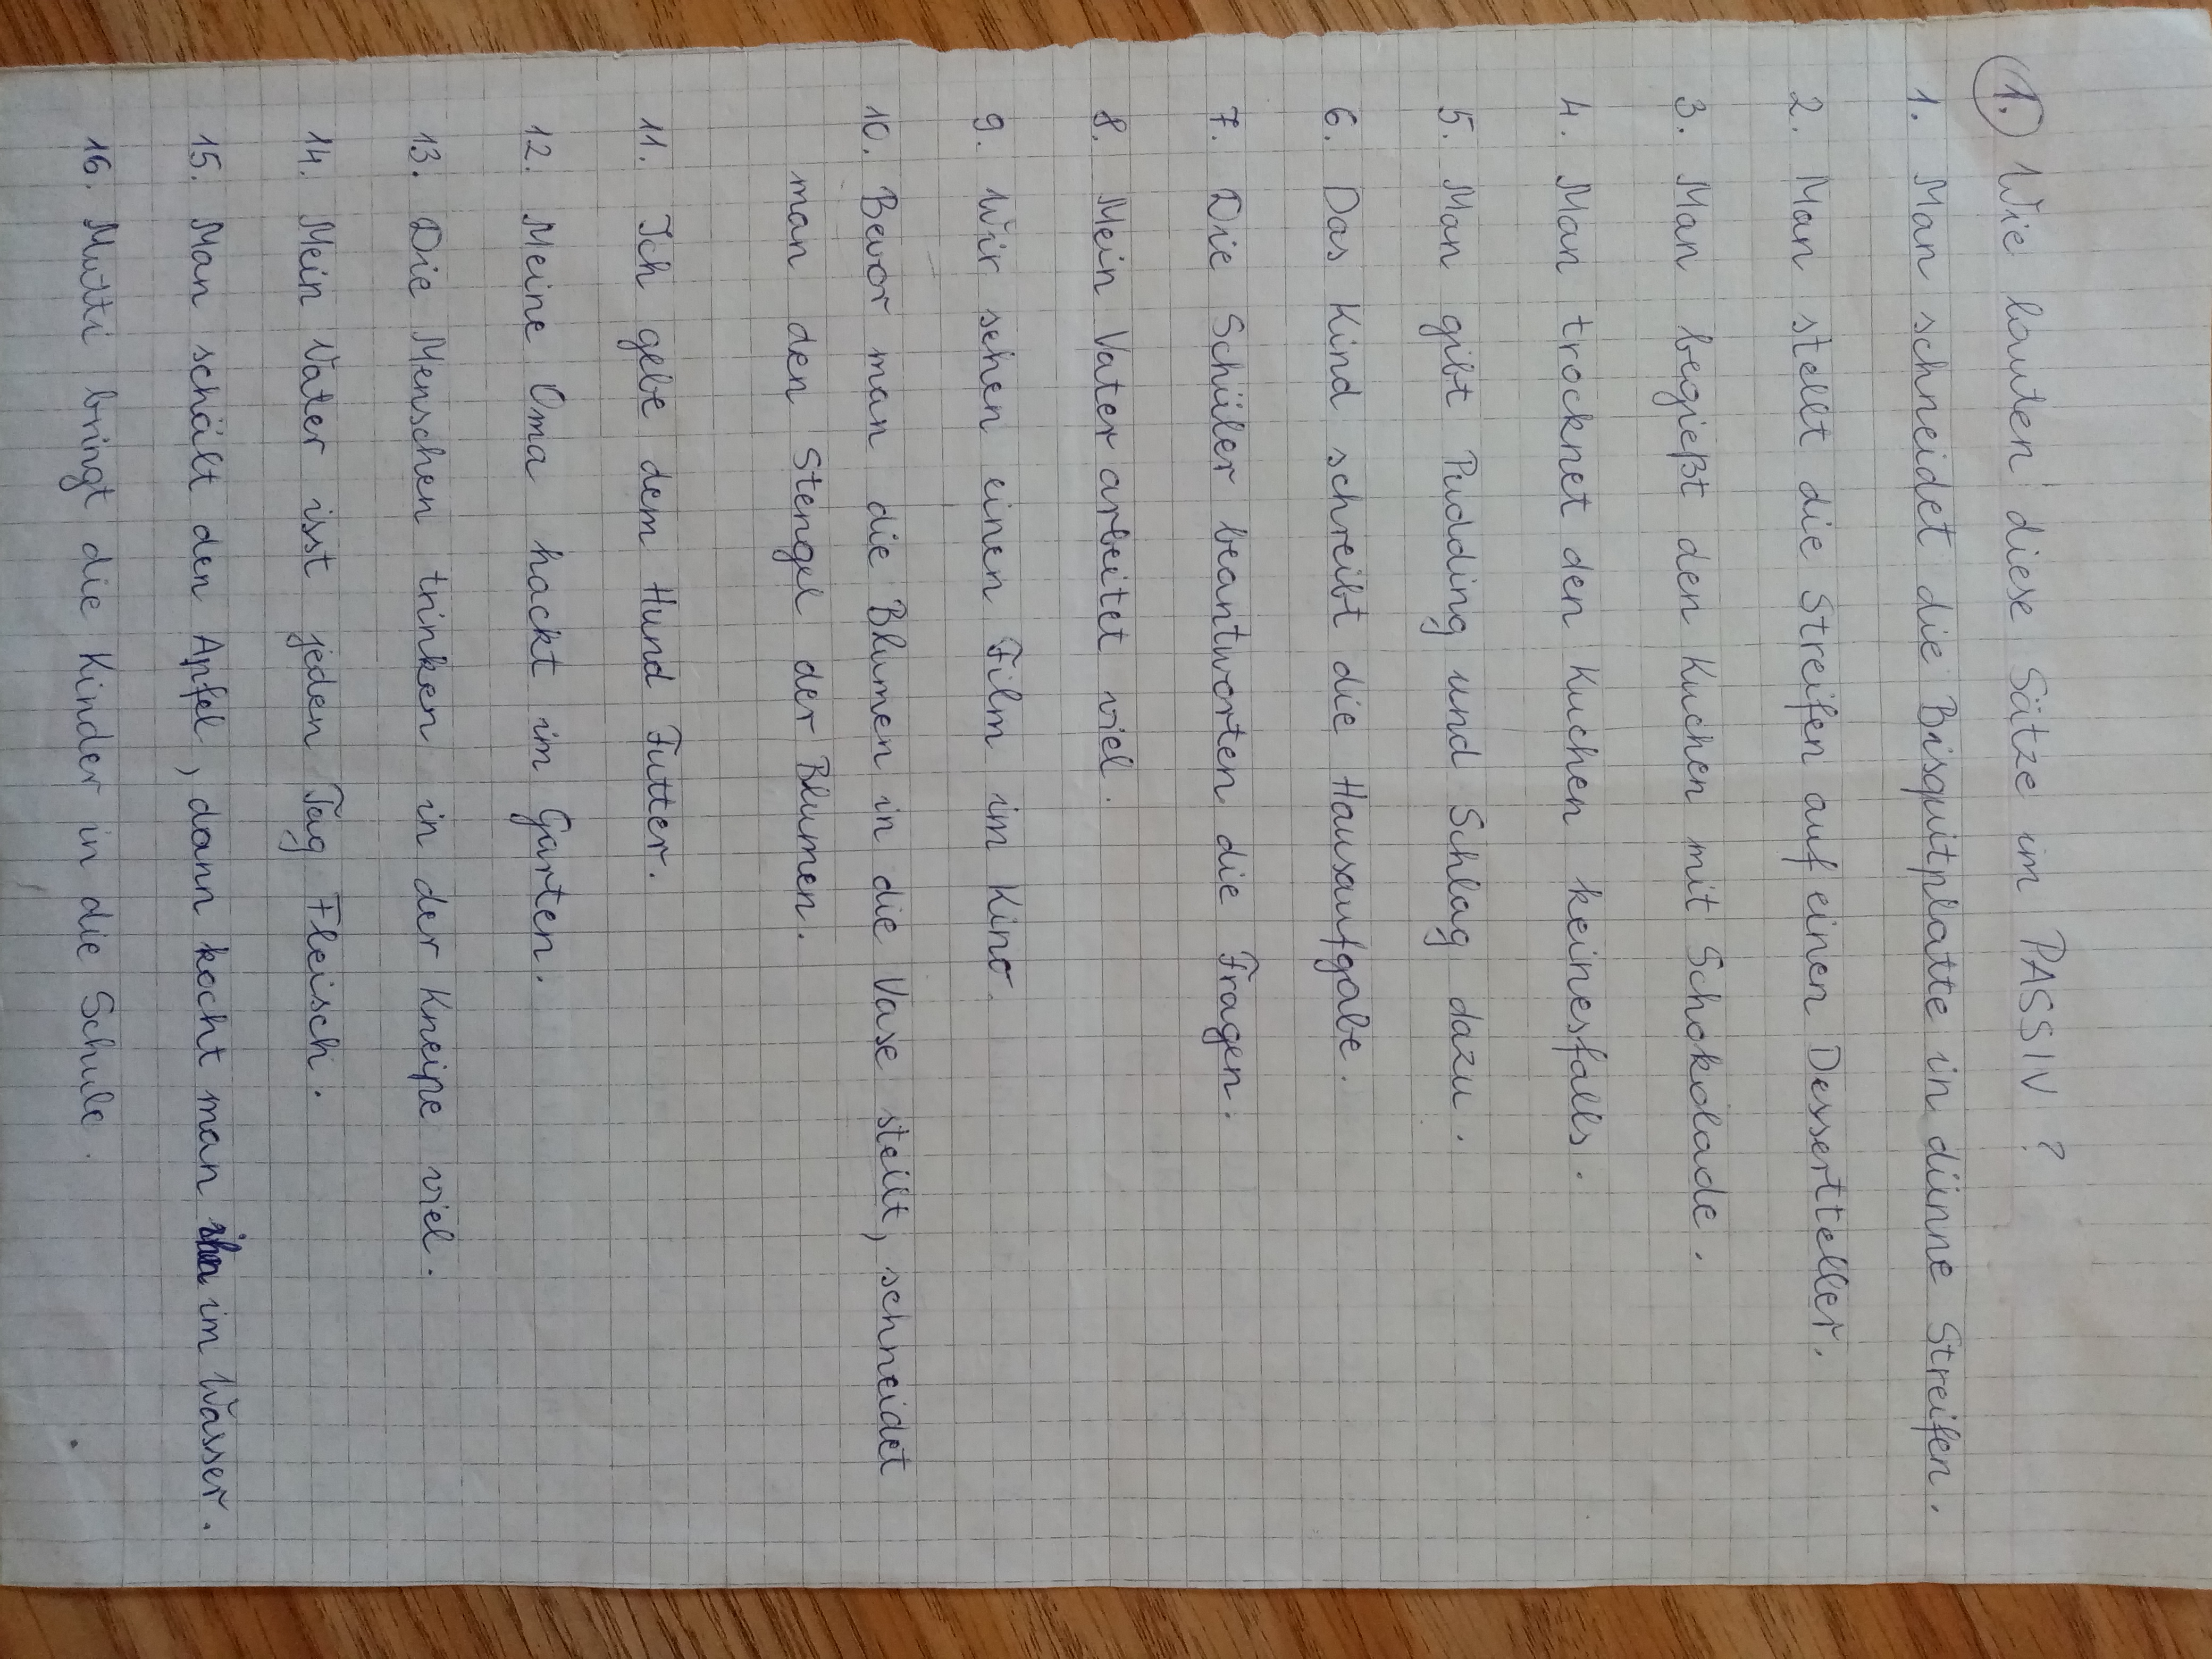 1. Wie lauten diese Sätze im PASSIV?
1. Man schneidet die Bisquitplatte in dünne Streifen.
2. Man stellt die Streifen auf einen Dessertteller.
3. Man begießt den Kuchen mit Schokolade.
4. Man trocknet den Kuchen keinesfalls.
5. Man gibt Pudding und Schlag dazu.
6. Das Kind schreibt die Hausaufgabe.
7. Die Schüler beantworten die Fragen.
8. Mein Vater arbeitet viel.
9. Wir sehen einen Film im Kino.
10. Bevor man die Blumen in die Vase stellt, schneidet
man den Stengel der Blumen.
11. Ich gebe dem Hund Futter.
12. Meine Oma hackt im Garten.
13. Die Menschen trinken in der Kneipe viel.
14. Mein Vater isst jeden Tag Fleisch.
15. Man schält den Apfel, dann kocht man ihn im Wasser.
16. Mutti bringt die Kinder in die Schule.